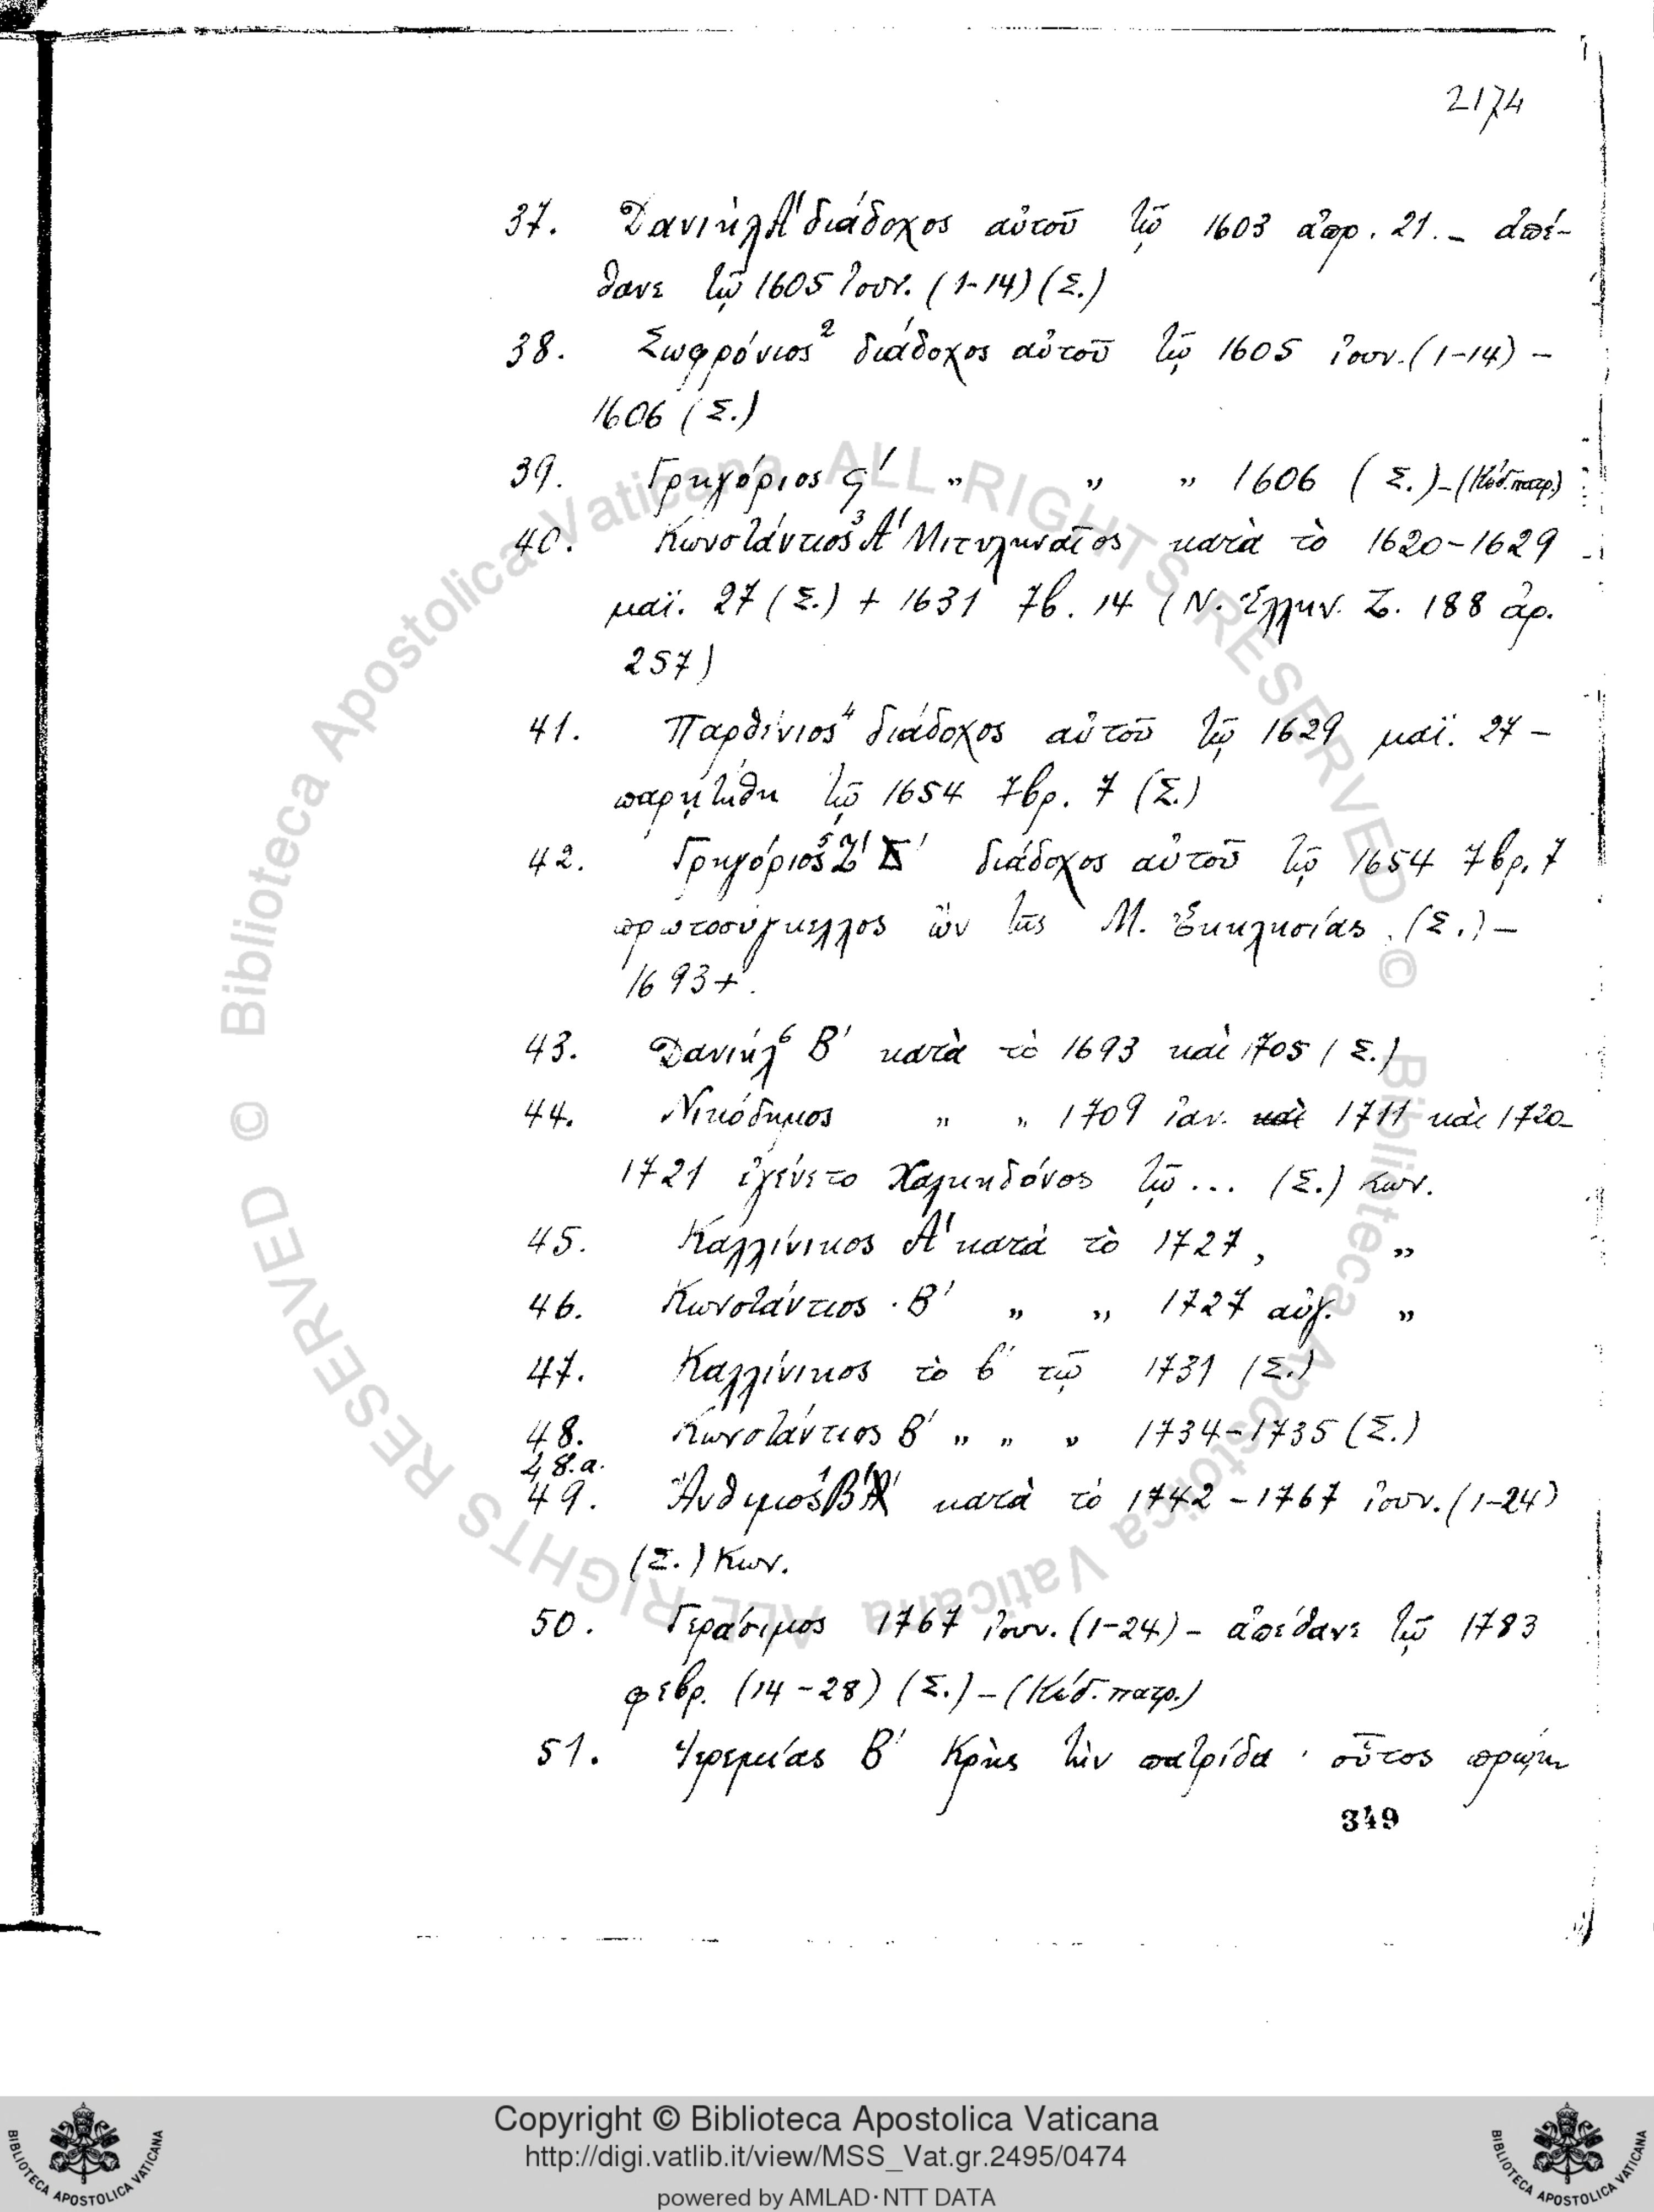 2174
37. Δανιὴλ Α' διάδοχος αὐτοῦ τῷ 1603 ἀπρ. 21. – ἀπέ-
θανε τῷ 1605 ἰουν. (1-14) (Σ.)
38. Σωφρόνιος² διάδοχος αὐτοῦ τῷ 1605 ἰουν. (1-14) –
1606 (Σ.)
39. Γρηγόριος Ϛ' „ „ „ 1606 (Σ.) – (Κώδ. πατρ.)
40. Κωνστάντιος³ Α' Μιτυληναῖος κατὰ τὸ 1620-1629
μαϊ. 27 (Σ.) + 1631 7β. 14 (Ν. Ἑλλην. Ζ. 188 ἀρ.
257)
41. Παρθένιος⁴ διάδοχος αὐτοῦ τῷ 1629 μαϊ. 27 –
παρῃτήθη τῷ 1654 7βρ. 7 (Σ.)
42. Γρηγόριος⁵ Ζ' διάδοχος αὐτοῦ τῷ 1654 7βρ. 7
πρωτοσύγκελλος ὢν τῆς Μ. Ἐκκλησίας (Σ.) –
1693+.
43. Δανιήλ⁶ Β' κατὰ τὸ 1693 καὶ 1705 (Σ.)
44. Νικόδημος „ „ 1709 ἰαν. καὶ 1711 καὶ 1720-
1721 ἐγένετο Χαλκηδόνος τῷ ... (Σ.) Κων.
45. Καλλίνικος Α' κατὰ τὸ 1727, „
46. Κωνστάντιος Β' „ „ 1727 αὐγ. „
47. Καλλίνικος τὸ β' τῷ 1731 (Σ.)
48. Κωνστάντιος Β' „ „ „ 1734-1735 (Σ.)
48.α.
49. Ἄνθιμος¹ Β' κατὰ τὸ 1742-1767 ἰουν. (1-24)
(Σ.) Κων.
50. Γεράσιμος 1767 ἰουν. (1-24) – ἀπέθανε τῷ 1783
φεβρ. (14-28) (Σ.) – (Κώδ. πατρ.)
51. Ἱερεμίας Β' Κρὴς τὴν πατρίδα · οὗτος πρώην
349
© Biblioteca Apostolica Vaticana ALL RIGHTS RESERVED © Biblioteca Apostolica Vaticana ALL RIGHTS RESERVED
Copyright © Biblioteca Apostolica Vaticana
http://digi.vatlib.it/view/MSS_Vat.gr.2495/0474
powered by AMLAD·NTT DATA
BIBLIOTECA APOSTOLICA VATICANA
BIBLIOTECA APOSTOLICA VATICANA